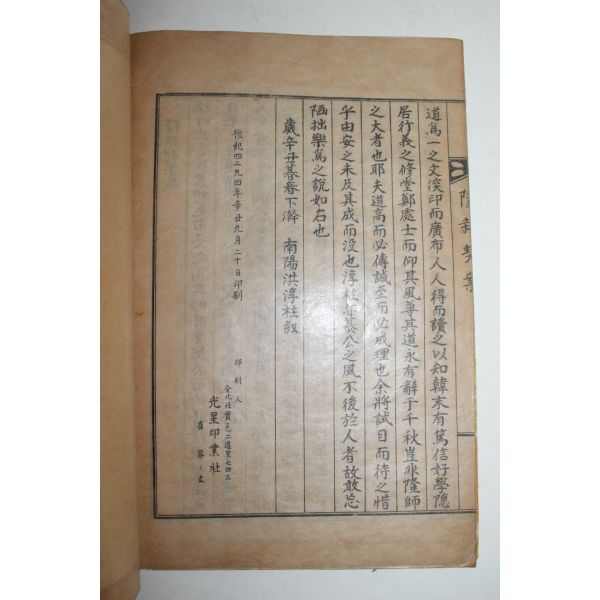 道爲一之文深印而廣布人人得而讀之以知韓末有篤信好學隱
居行義之修堂鄭處士而仰其風尊其道永有辭于千秋豈非隆師
之大者也耶夫道高而必傳誠至而必成理也余將試目而待之惜
乎由安之未及其成而没也淳柱慕公之風不後於人者故敢忘
陋拙樂爲之說如右也
歲辛丑暮春下澣 南陽洪淳柱敍
檀紀四二九四年辛丑九月二十日印刷
印刷人
全北任實邑二道里七四三
光星印業社
崔容文
契案